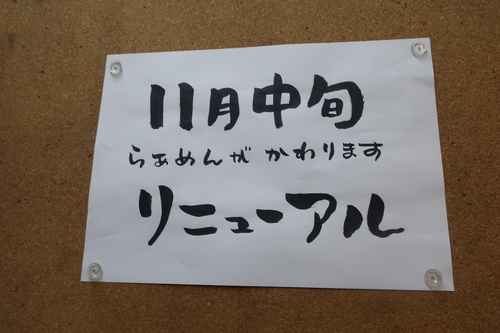 11月中旬
らぁめんがかわります
リニューアル